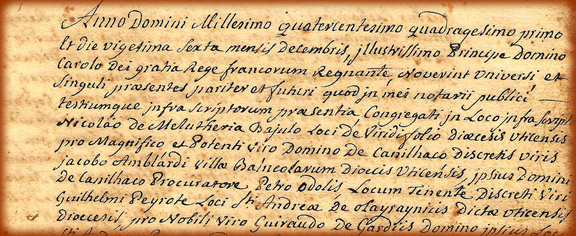 Anno Domini Millesimo quatercentesimo quadragesimo primo
Et die vigesima Sexta mensis decembris, jllustrissimo Principe Domino
Carolo Dei gratia Rege francorum Regnante, Noverint Universi et
Singuli præsentes pariter et futuri quod in mei notarii publici
testiumque jnfra scriptorum præsentia Congregati jn Loco jnfra script
Nicolao de Meleutheria Bajulo Loci de Viridifolio diœcesis Uticensis
pro Magnifico et Potenti viro Domino de Canilhaco discretis viris
jacobo Amblardi villæ Balneolarum Diocis Uticensis, jpsius Domini
de Canilhaco Procuratore, Petro Odolis, Locum Tenente, Discreti Viri
Guilhelmi Peyrote Loci Sti Andreæ de Olayraynicis dictæ uticensis
Diocesis, pro Nobili Viro Guiraudo De Gardiis Domino jpsius Loci